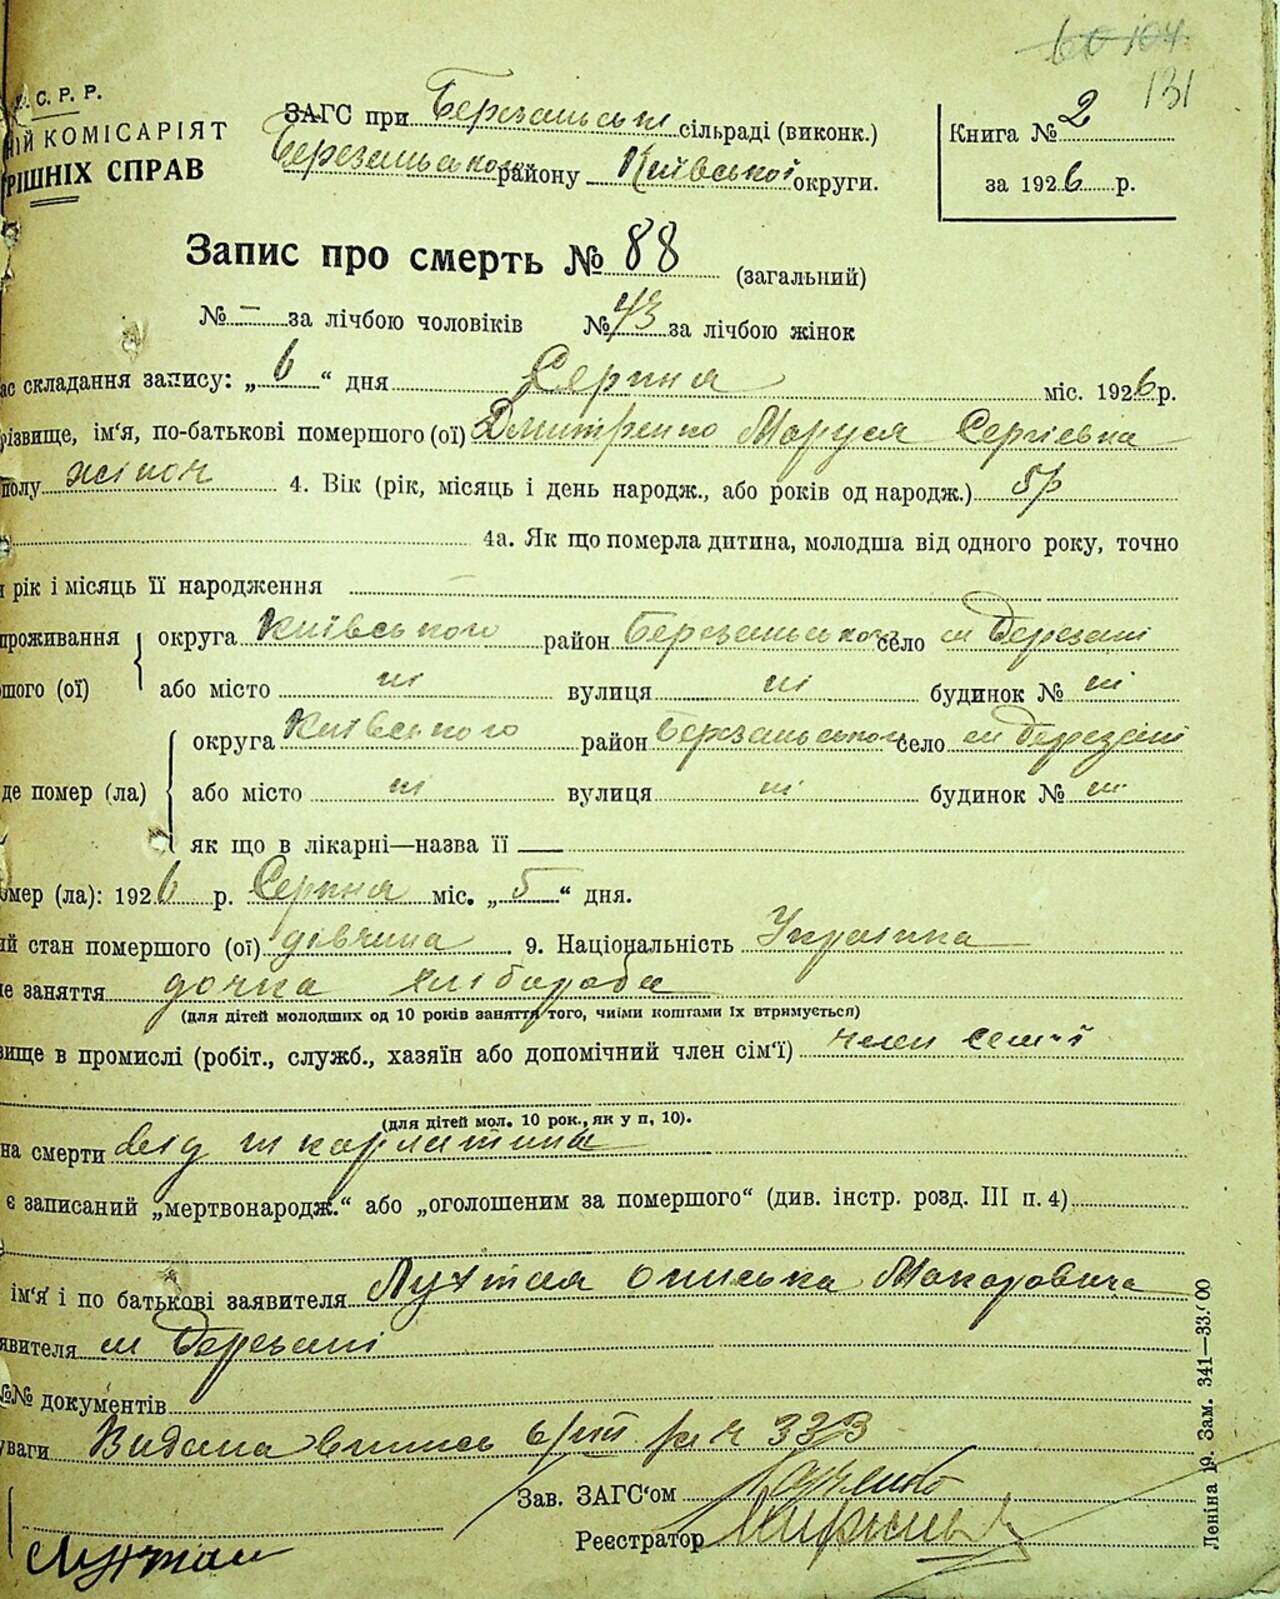 60 104
131
С. Р. Р.
ІЙ КОМІСАРІЯТ
РІШНІХ СПРАВ
ЗАГС при Березанськ сільраді (виконк.)
Березанського району Київської округи.
Книга № 2
за 1926 р.
Запис про смерть № 88 (загальний)
№ – за лічбою чоловіків № 43 за лічбою жінок
ас складання запису: „6“ дня Серпня міс. 1926 р.
різвище, ім‘я, по-батькові помершого (ої) Дмитренко Маруся Сергієвна
полу жіноч 4. Вік (рік, місяць і день народж., або років од народж.) 5р
4а. Як що померла дитина, молодша від одного року, точно
рік і місяць її народження
проживання округа Київського район Березанського село м Березані
шого (ої) або місто вулиця будинок №
округа Київського район Березанського село м Березані
де помер (ла) або місто вулиця будинок №
як що в лікарні—назва її —
омер (ла): 1926 р. Серпня міс. „5“ дня.
ий стан помершого (ої) дівчина 9. Національність Українка
не заняття дочка хлібороба
(для дітей молодших од 10 років заняття того, чиїми коштами їх втримується)
вище в промислі (робіт., служб., хазяїн або допомічний член сім‘ї) член семї
(для дітей мол. 10 рок., як у п, 10).
на смерти від шкарлатина
є записаний „мертвонародж.“ або „оголошеним за помершого“ (див. інстр. розд. III п. 4)
ім‘я і по батькові заявителя Лухтая Ониська Макаровича
явителя м Березані
№№ документів
уваги Видана впись 6/VIII 333
Зав. ЗАГС‘ом
Реєстратор
Лухтай
Леніна 19. Зам. 341—33.00